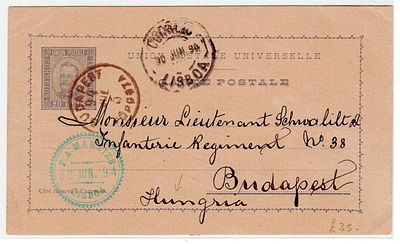 UNION POSTALE UNIVERSELLE
CARTE POSTALE
CORREIO
30 JUN. 94
LISBOA
BUDAPEST
Monsieur Lieutenant
Infanterie Regiment No. 38
Budapest
Hungria
30 JUN. 94
LISBOA
Côté réservé à l'adresse.
£35-